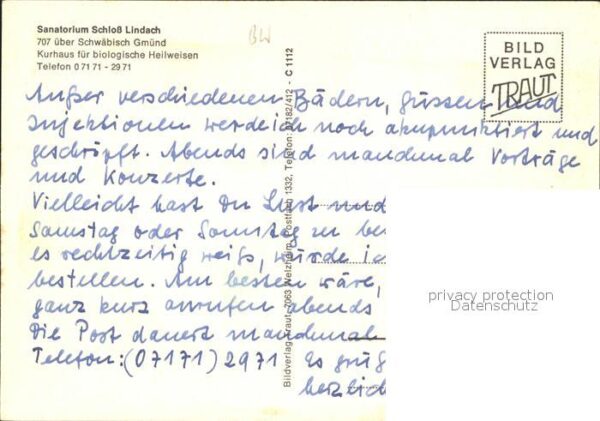 Sanatorium Schloß Lindach
707 über Schwäbisch Gmünd
Kurhaus für biologische Heilweisen
Telefon 0 71 71 - 29 71
BW
BILD
VERLAG
TRAUT
Bildverlag Traut, 7063 Welzheim, Postfach 1332, Telefon: 07182/412 - C 1112
Außer verschiedenen Bädern, Güssen und
Injektionen werde ich noch akupunktiert und
geschröpft. Abends sind manchmal Vorträge
und Konzerte.
Vielleicht hast Du Lust und
Samstag oder Sonntag zu be
es rechtzeitig weiß, würde ic
bestellen. Am besten wäre,
ganz kurz anrufen abends
Die Post dauert manchmal
Telefon: (07171) 2971 Es grüß
herzlich
privacy protection
Datenschutz